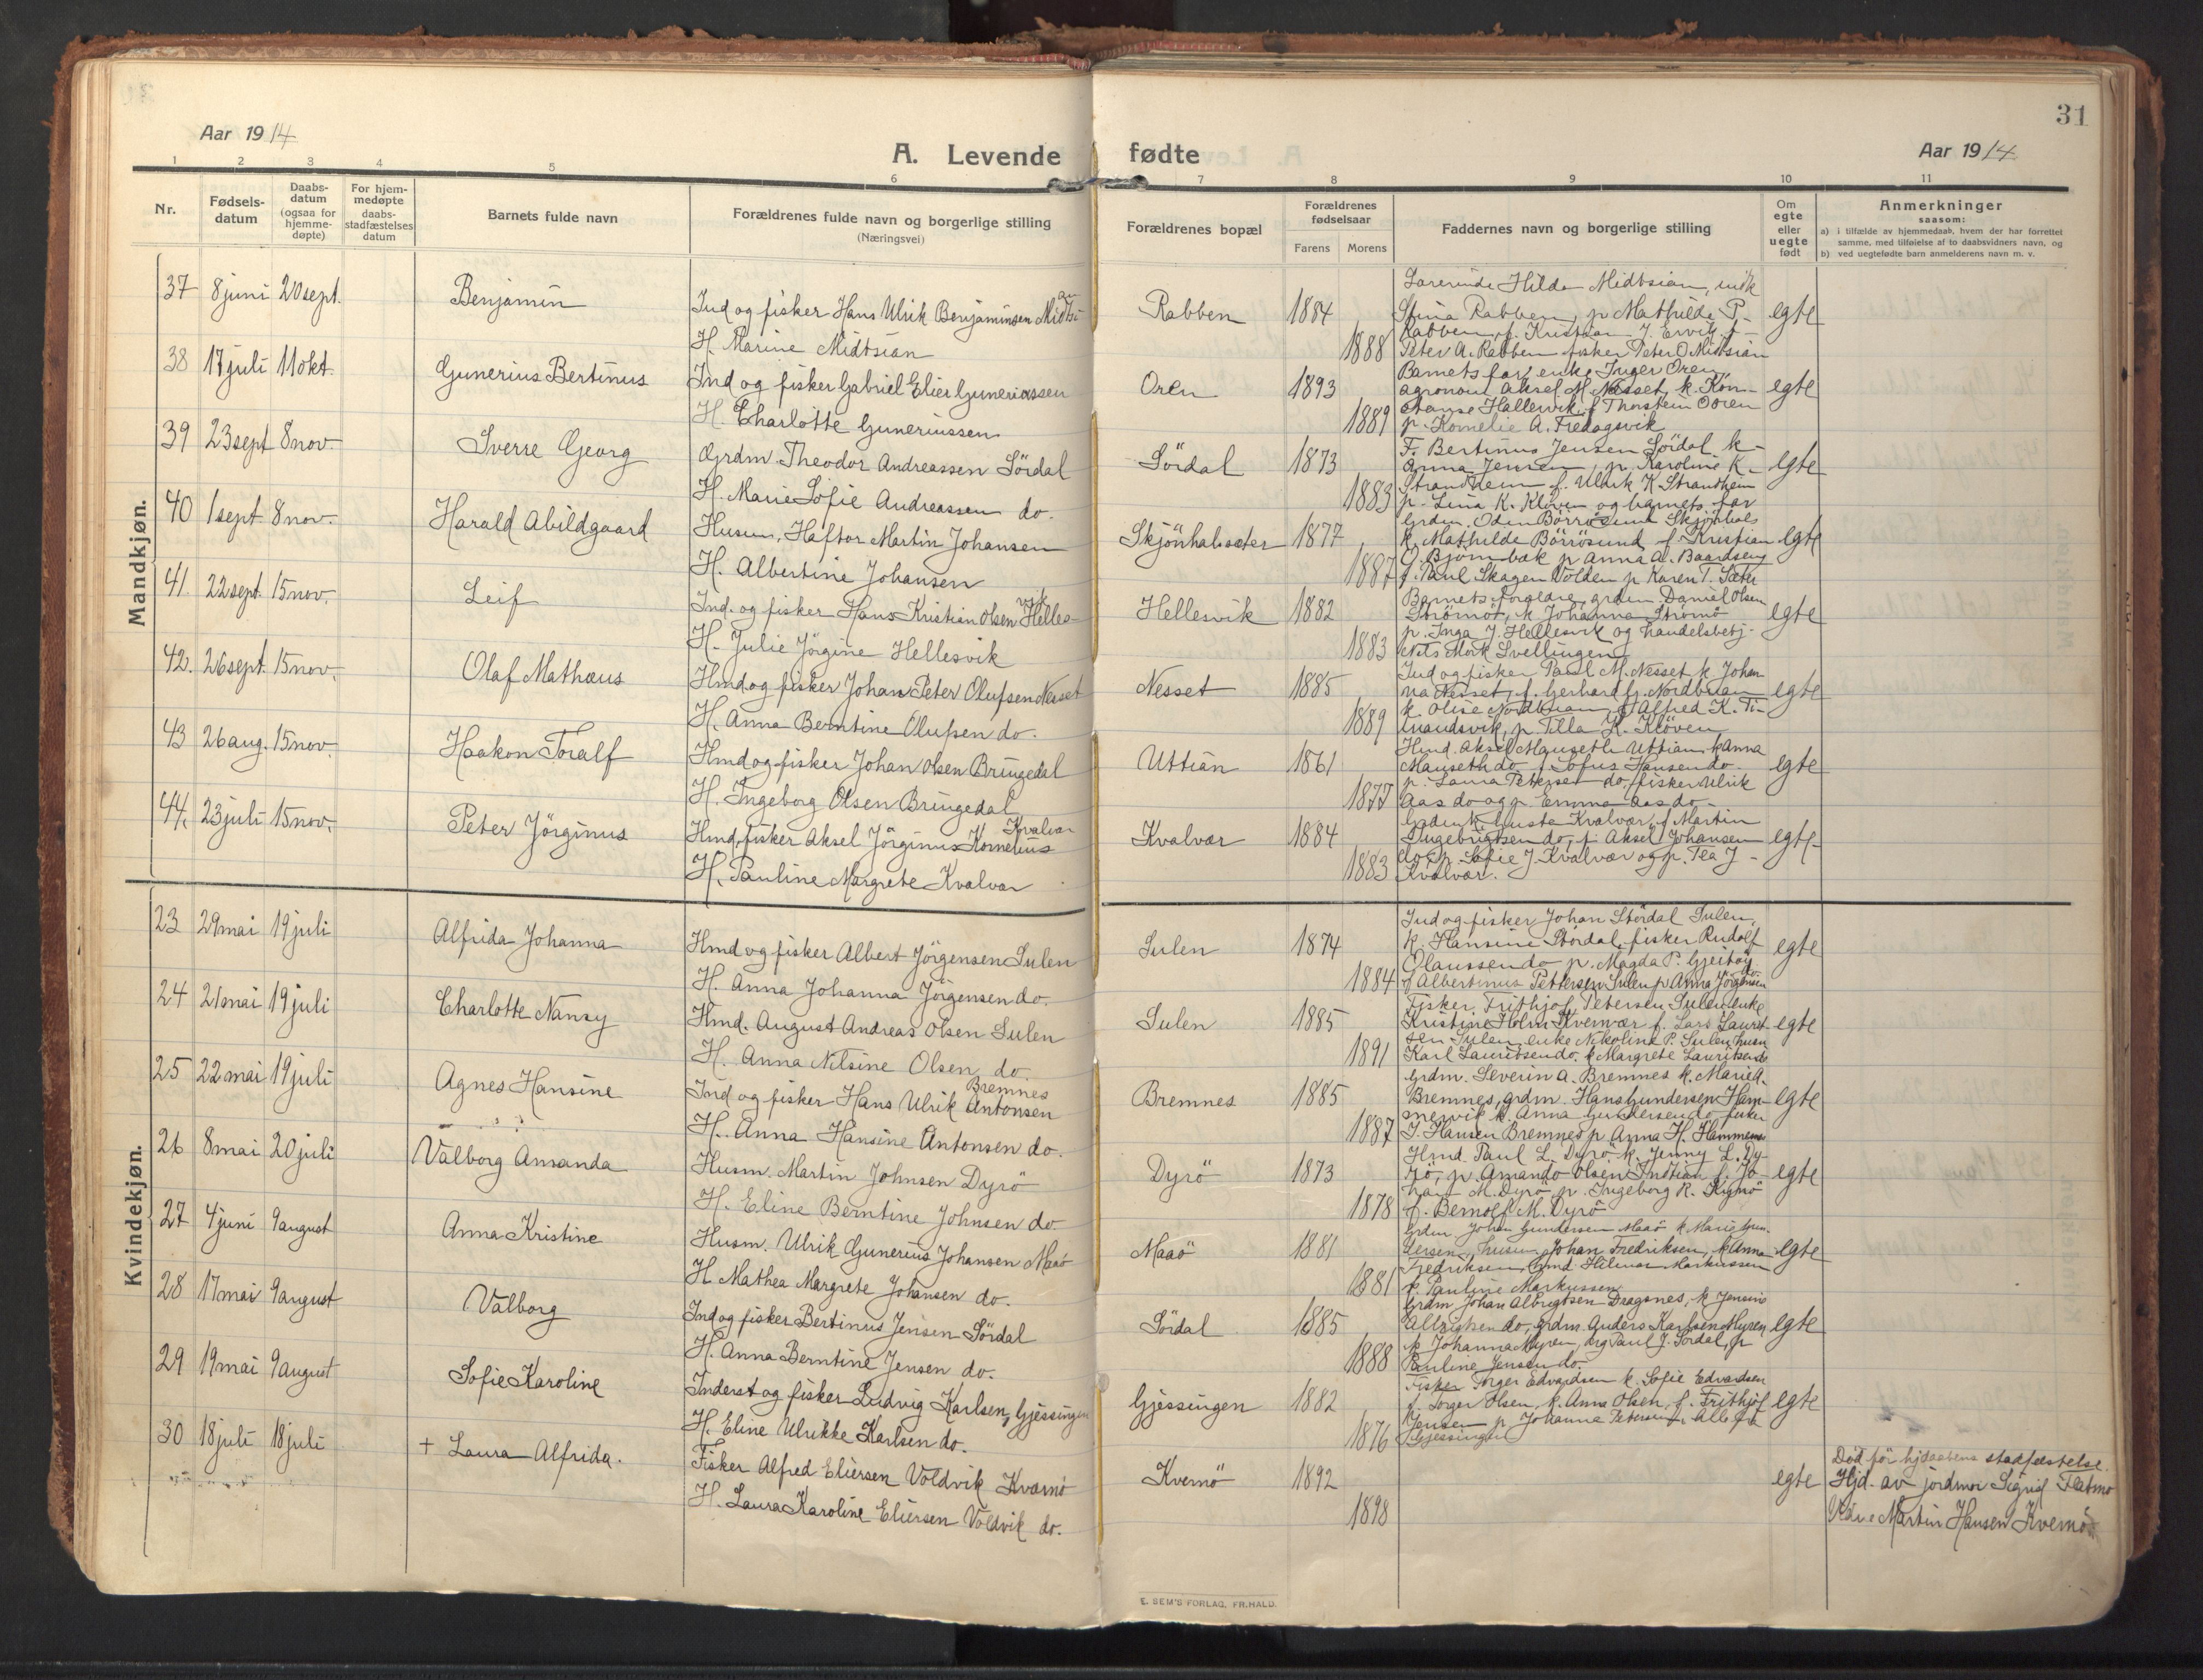 31
Aar 1914
A. Levende fødte
Aar 1914
1 2 3 4 5 6 7 8 9 10 11
Nr.
Fødsels-
datum
Daabs-
datum
(ogsaa for
hjemme-
døpte)
For hjem-
medøpte
daabs-
stadfæstelses
datum
Barnets fulde navn
Forældrenes fulde navn og borgerlige stilling
(Næringsvei)
Forældrenes bopæl
Forældrenes
fødselsaar
Farens Morens
Faddernes navn og borgerlige stilling
Om
egte
eller
uegte
født
Anmerkninger
saasom:
a) i tilfælde av hjemmedaab, hvem der har forrettet
samme, med tilføielse af to daabsvidners navn, og
b) ved uegtefødte barn anmelderens navn m. v.
Mandkjøn.
37 8 juni 20 sept. Benjamin
Ind og fisker Hans Ulrik Benjaminsen Midtsi-
an
H. Marine Midtsian
Rabben 1884 1888
Hilda Midtsian,
Stina Rabben, p Mathilde P.
Rabben, f. Kristian J. Ervik f-
Peter A. Rabben fisker Peter O Midtsian
egte
38 17 juli 11 okt. Gunerius Bertinus
Ind og fisker Gabriel Elier Guneriussen
H. Charlotte Guneriussen
Oren 1893 1889
Barnets far, enke Inger Oren
agronom Aksel M Nesset, k. Kon-
stanse Hallesvik f Thorstein Oren
p. Kornelie A. Fredagsvik
egte
39 23 sept 8 nov. Sverre Georg
Grdm. Theodor Andreassen Sördal
H. Marie Sofie Andreassen do.
Sördal 1873 1883
F. Bertinus Jensen Sördal k-
Anna Jensen, p. Karoline K-
Strandheim f. Ulrik K Strandheim
p. Lina K. Klöven og barnets far
egte
40 1 sept 8 nov. Harald Abildgaard
Husm. Haftor Martin Johansen
H. Albertine Johansen
Skjönhalsæter 1877 1887
Grdm. Odin Börrösund Skjönhals
k. Mathilde Börrösund f. Kristian
O Björnbæk p Anna A. Baardsen
f. Paul Skagen Volden p Karen T. Sæter
egte
41. 22 sept. 15 nov. Leif
Ind. og fisker Hans Kristian Olsen Helles-
vik
H. Julie Jörgine Hellesvik
Hellesvik 1882 1883
Barnets forældre, grdm Daniel Olsen
Strömö, k Johanna Strömö
p. Inga J. Hellesvik og handelsbetj-
Nils Mörk Svellingen
egte
42. 26 sept. 15 nov. Olaf Mathæus
Hmd og fisker Johan Peter Olufsen Nesset
H. Anna Berntine Olufsen do.
Nesset 1885 1889
Ind og fisker Paul M. Nesset k Johan
na Nesset, f. Gerhard G. Nordbuan
k. Olise Nordbuan, f Alfred K. Ti-
mandsvik, p. Tilla K. Klöven
egte
43 26 aug. 15 nov. Haakon Toralf
Hmd og fisker Johan Olsen Bringedal
H. Ingeborg Olsen Bringedal
Uttian 1861 1877
Hmd. Aksel Mauseth Uttian k Anna
Mauseth do f Sofus Hansen do.
p. Laura Petersen do, fisker Ulrik
Aas do og p. Emma Aas do-
egte
44. 23 juli 15 nov. Peter Jörginus
Hmd, fisker Aksel Jörginus Kornelius
Kvalvær
H. Pauline Margrete Kvalvær
Kvalvær 1884 1883
Guste Kvalvær, f Martin
Ingebrigtsen do, f. Aksel Johansen
do, p. Sofie J Kvalvær og p. Tea J-
Kvalvær.
egte
Kvindekjøn.
23 29 mai 19 juli Alfrida Johanna
Hmd og fisker Albert Jörgensen Sulen
H. Anna Johanna Jörgensen do.
Sulen 1874 1884
Ind og fisker Johan Stördal Sulen,
k. Hansine Stördal, fisker Rudolf
Olaussen do p. Magda P. Gjeitöy
f Albertinus Pettersen Sulen p Anna Jörgensen
do.
egte
24 21 mai 19 juli Charlotte Nansy
Hmd. August Andreas Olsen Sulen
H. Anna Nilsine Olsen do.
Sulen 1885 1891
Fisker Frithjof Petersen Sulen enke
Kristine Holm Kvernær f. Lars Laurit-
sen Sulen enke Nikoline P. Sulen husm
Karl Lauritsen do. k Margrete Lauritsen do
egte
25 22 mai 19 juli Agnes Hansine
Ind og fisker Hans Ulrik Antonsen
Bremnes
H. Anna Hansine Antonsen do.
Bremnes 1885 1887
Grdm. Severin A. Bremnes k. Marie A.
Bremnes, grdm. Hans Gundersen Ham-
mervik k. Anna Gundersen do fisker
J. Hansen Bremnes p Anna H. Hammers
egte
26 8 mai 20 juli Valborg Amanda
Husm. Martin Johnsen Dyrö
H. Eline Berntine Johnsen do
Dyrö 1873 1878
Hmd Paul L. Dyrö k. Jenny L. Dy-
rö, p. Amanda Olsen Indtian f. Jo-
han M. Dyrö p. Ingeborg R.
f. Bernolf M. Dyrö
egte
27 4 juni 9 august Anna Kristine
Husm. Ulrik Gunerius Johansen Maaö
H. Mathea Margrete Johansen do.
Maaö 1881 1881
Grdm Johan Gundersen Maaö k Marie Gun-
dersen, husm Johan Fredriksen, k Anna
Fredriksen, Hmd Hilmar Markussen
k. Pauline Markussen
egte
28 17 mai 9 august Valborg
Ind og fisker Bertinus Jensen Sördal
H. Anna Berntine Jensen do.
Sördal 1885 1888
Grdm Johan Albrigtsen Dragsnes, k Jensine
Albrigtsen do, grdm. Anders Karlsen Myren
k Johanna Myren, ug Paul J. Sördal, p
Pauline Jensen do.
egte
29 19 mai 9 august Sofie Karoline
Inderst og fisker Ludvig Karlsen, Gjessingen
H. Eline Ulrikke Karlsen do.
Gjessingen 1882 1876
Fisker Torger Edvardsen k. Sofie Edvardsen
f. Torger Olsen, k. Anna Olsen, f. Frithjof
Jensen p Johanna Petersen Alle fra
Gjessingen
egte
30 18 juli 18 juli + Laura Alfrida.
Fisker Alfred Eliersen Voldvik Kvernö
H. Laura Karoline Eliersen Voldvik do.
Kvernö 1892 1898
egte
Död för hjdaabens stadfæstelse.
Hjd. av jordmor Sigrid Flatmo
Martin Hansen Kvernö
E. SEM'S FORLAG, FR.HALD.